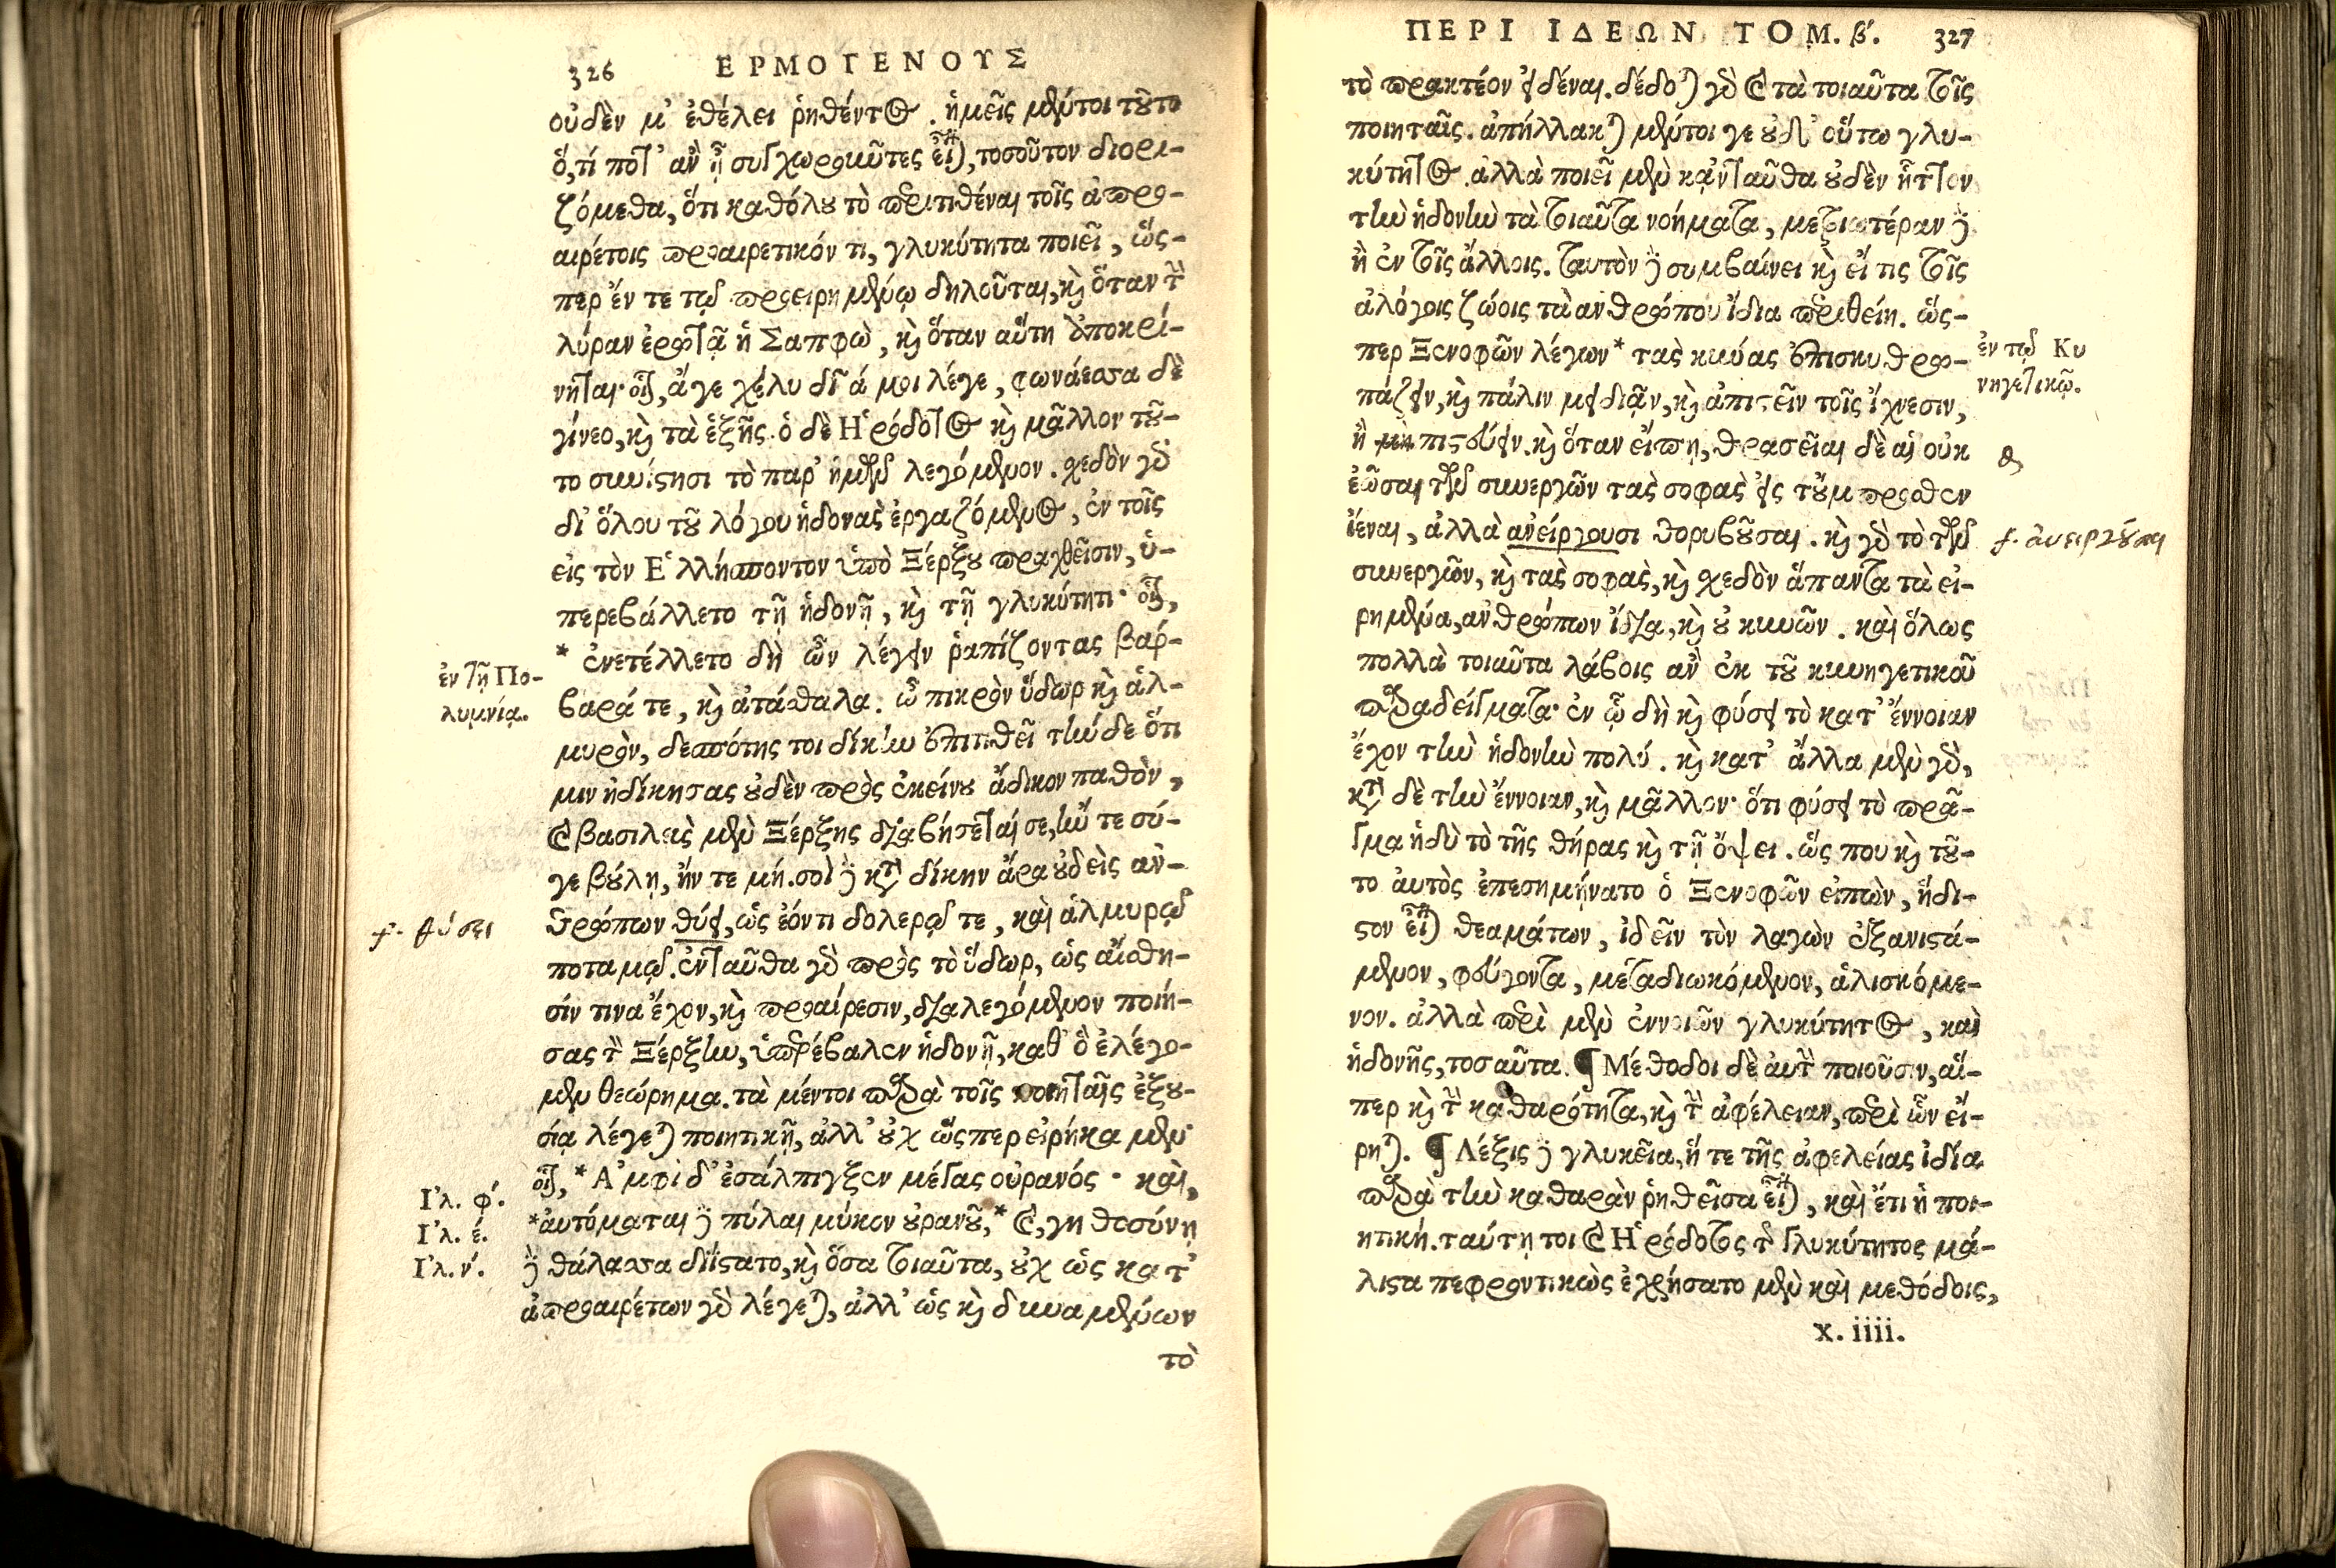 326 ΕΡΜΟΓΕΝΟΥΣ
οὐδὲν μ' ἐθέλει ῥηθέντος. ἡμεῖς μέντοι τοῦτο
ὅ,τί ποτ' ἂν ᾖ συγχωροῦντες εἶναι, τοσοῦτον διορι-
ζόμεθα, ὅτι καθόλου τὸ περιτιθέναι τοῖς ἀπρο-
αιρέτοις προαιρετικόν τι, γλυκύτητα ποιεῖ, ὥς-
περ ἔν τε τῷ προειρημένῳ δηλοῦται, καὶ ὅταν τὴν
λύραν ἐρωτᾷ ἡ Σαπφὼ, καὶ ὅταν αὕτη ἀποκρί-
νηται· οἷον, ἄγε χέλυ δῖά μοι λέγε, φωνάεσσα δὲ
γίνεο, καὶ τὰ ἑξῆς. ὁ δὲ Ἡρόδοτος καὶ μᾶλλον τοῦ-
το συνίστησι τὸ παρ' ἡμῶν λεγόμενον. σχεδὸν γὰρ
δι' ὅλου τοῦ λόγου ἡδονὰς ἐργαζόμενος, ἐν τοῖς
εἰς τὸν Ἑλλήσποντον ὑπὸ Ξέρξου πραχθεῖσιν, ὑ-
περεβάλλετο τῇ ἡδονῇ, καὶ τῇ γλυκύτητι· οἷον,
* ἐνετέλλετο δὴ ὦν λέγειν ῥαπίζοντας βάρ-
βαρά τε, καὶ ἀτάσθαλα. ὦ πικρὸν ὕδωρ καὶ ἁλ-
μυρὸν, δεσπότης τοι δίκην ἐπιτιθεῖ τήνδε ὅτι
μιν ἠδίκησας οὐδὲν πρὸς ἐκείνου ἄδικον παθὸν,
καὶ βασιλεὺς μὲν Ξέρξης διαβήσεταί σε, ἤν τε σύ-
γε βούλῃ, ἤν τε μή. σοὶ δὲ κατὰ δίκην ἄρα οὐδεὶς ἀν-
θρώπων θύει, ὡς ἐόντι δολερῷ τε, καὶ ἁλμυρῷ
ποταμῷ. ἐνταῦθα γὰρ πρὸς τὸ ὕδωρ, ὡς αἴσθη-
σίν τινα ἔχον, καὶ προαίρεσιν, διαλεγόμενον ποιή-
σας τὸν Ξέρξην, ὑπερέβαλεν ἡδονῇ, καθ' ὃ ἐλέγο-
μεν θεώρημα. τὰ μέντοι παρὰ τοῖς ποιηταῖς ἐξου-
σίᾳ λέγεται ποιητικῇ, ἀλλ' οὐχ ὥσπερ εἰρήκαμεν·
οἷον, * Ἀμφὶ δ' ἐσάλπιγξεν μέγας οὐρανός· καὶ,
*αὐτόμαται δὲ πύλαι μύκον οὐρανοῦ,* καὶ, γηθοσύνῃ
δὲ θάλασσα διΐστατο, καὶ ὅσα τοιαῦτα, οὐχ ὡς κατ'
ἀπροαιρέτων γὰρ λέγεται, ἀλλ' ὡς καὶ δυναμένων
τὸ
ἐν τῇ Πο-
λυμνίᾳ.
f. θύσει
Ιλ. φ'.
Ιλ. έ.
Ιλ. ν'.
ΠΕΡΙ ΙΔΕΩΝ ΤΟΜ. β'. 327
τὸ πρακτέον εἰδέναι. δέδοται γὰρ καὶ τὰ τοιαῦτα τοῖς
ποιηταῖς. ἀπήλλακται μέντοι γε οὐδ' οὕτω γλυ-
κύτητος. ἀλλὰ ποιεῖ μὲν κἀνταῦθα οὐδὲν ἧττον
τὴν ἡδονὴν τὰ τοιαῦτα νοήματα, μετριωτέραν δὲ
ἢ ἐν τοῖς ἄλλοις. ταυτὸν δὲ συμβαίνει καὶ εἴ τις τοῖς
ἀλόγοις ζώοις τὰ ἀνθρώπου ἴδια περιθείη. ὥς-
περ Ξενοφῶν λέγων* τὰς κύνας ἐπισκυθρω-
πάζειν, καὶ πάλιν μειδιᾷν, καὶ ἀπιστεῖν τοῖς ἴχνεσιν,
ἢ μὴ πιστεύειν. καὶ ὅταν εἴπῃ, θρασεῖαι δὲ αἱ οὐκ
ἐῶσαι τῶν συνεργῶν τὰς σοφὰς εἰς τοὔμπροσθεν
ἰέναι, ἀλλὰ ἀνείργουσι θορυβοῦσαι. καὶ γὰρ τὸ τῶν
συνεργῶν, καὶ τὰς σοφὰς, καὶ σχεδὸν ἅπαντα τὰ εἰ-
ρημένα, ἀνθρώπων ἴδια, καὶ οὐ κυνῶν. καὶ ὅλως
πολλὰ τοιαῦτα λάβοις ἂν ἐκ τοῦ κυνηγετικοῦ
παραδείγματα· ἐν ᾧ δὴ καὶ φύσει τὸ κατ' ἔννοιαν
ἔχον τὴν ἡδονὴν πολύ. καὶ κατ' ἄλλα μὲν γὰρ,
κατὰ δὲ τὴν ἔννοιαν, καὶ μᾶλλον· ὅτι φύσει τὸ πρᾶ-
γμα ἡδὺ τὸ τῆς θήρας καὶ τῇ ὄψει. ὥς που καὶ τοῦ-
το αὐτὸς ἐπεσημήνατο ὁ Ξενοφῶν εἰπὼν, ἥδι-
στον εἶναι θεαμάτων, ἰδεῖν τὸν λαγὼν ἐξανιστά-
μενον, φεύγοντα, μεταδιωκόμενον, ἁλισκόμε-
νον. ἀλλὰ περὶ μὲν ἐννοιῶν γλυκύτητος, καὶ
ἡδονῆς, τοσαῦτα. ¶ Μέθοδοι δὲ αὐτὴν ποιοῦσιν, αἵ-
περ καὶ τὴν καθαρότητα, καὶ τὴν ἀφέλειαν, περὶ ὧν εἴ-
ρηται. ¶ Λέξις δὲ γλυκεῖα, ἥ τε τῆς ἀφελείας ἰδία
παρὰ τὴν καθαρὰν ῥηθεῖσα εἶναι, καὶ ἔτι ἡ ποι-
ητική. ταύτῃ τοι καὶ Ἡρόδοτος τῆς γλυκύτητος μά-
λιστα πεφροντικὼς ἐχρήσατο μὲν καὶ μεθόδοις,
x. iiii.
ἐν τῷ Κυ
νηγετικῷ.
f. ἀνειργοῦσαι